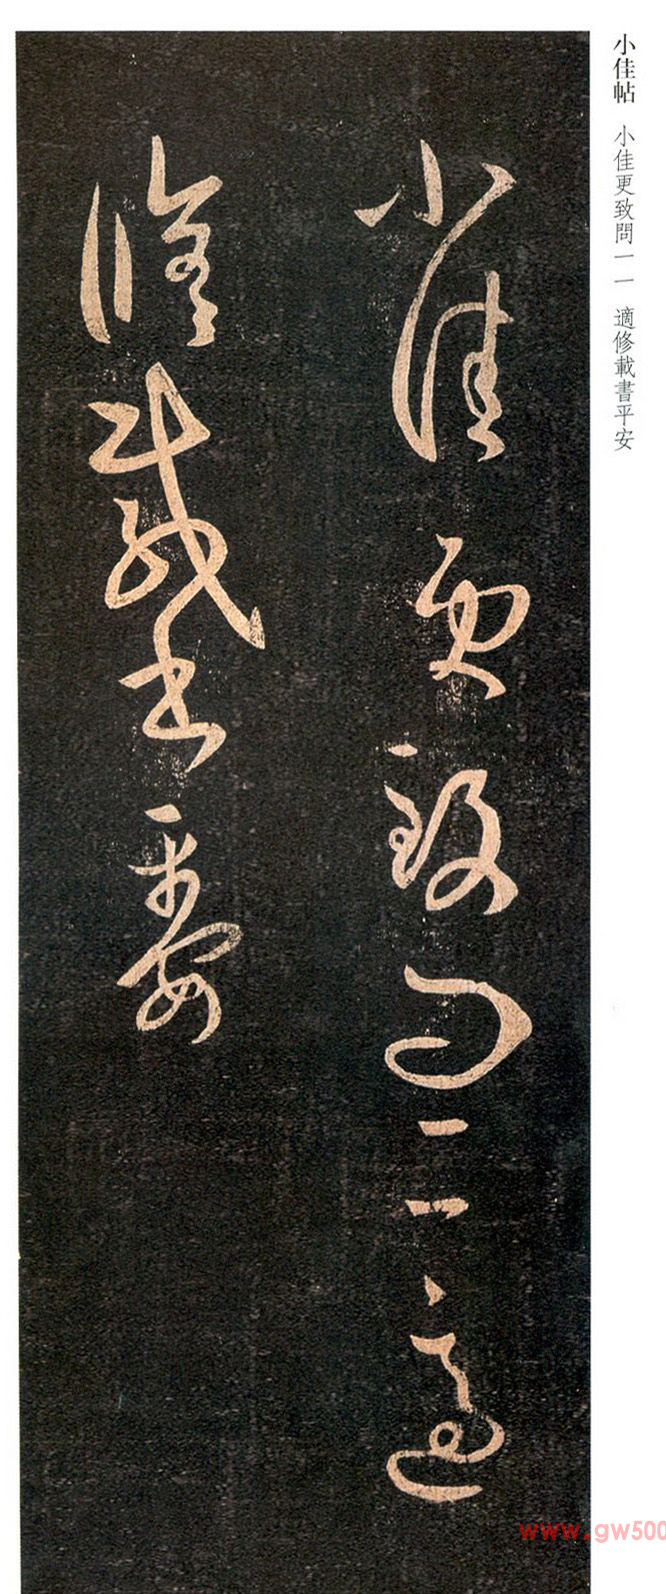 小佳帖 小佳更致問一一 適修載書平安
小佳更致問一一適
修載書平安
www.gw500